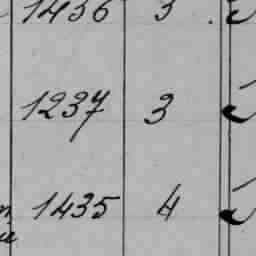 1436 3
1237 3
1435 4